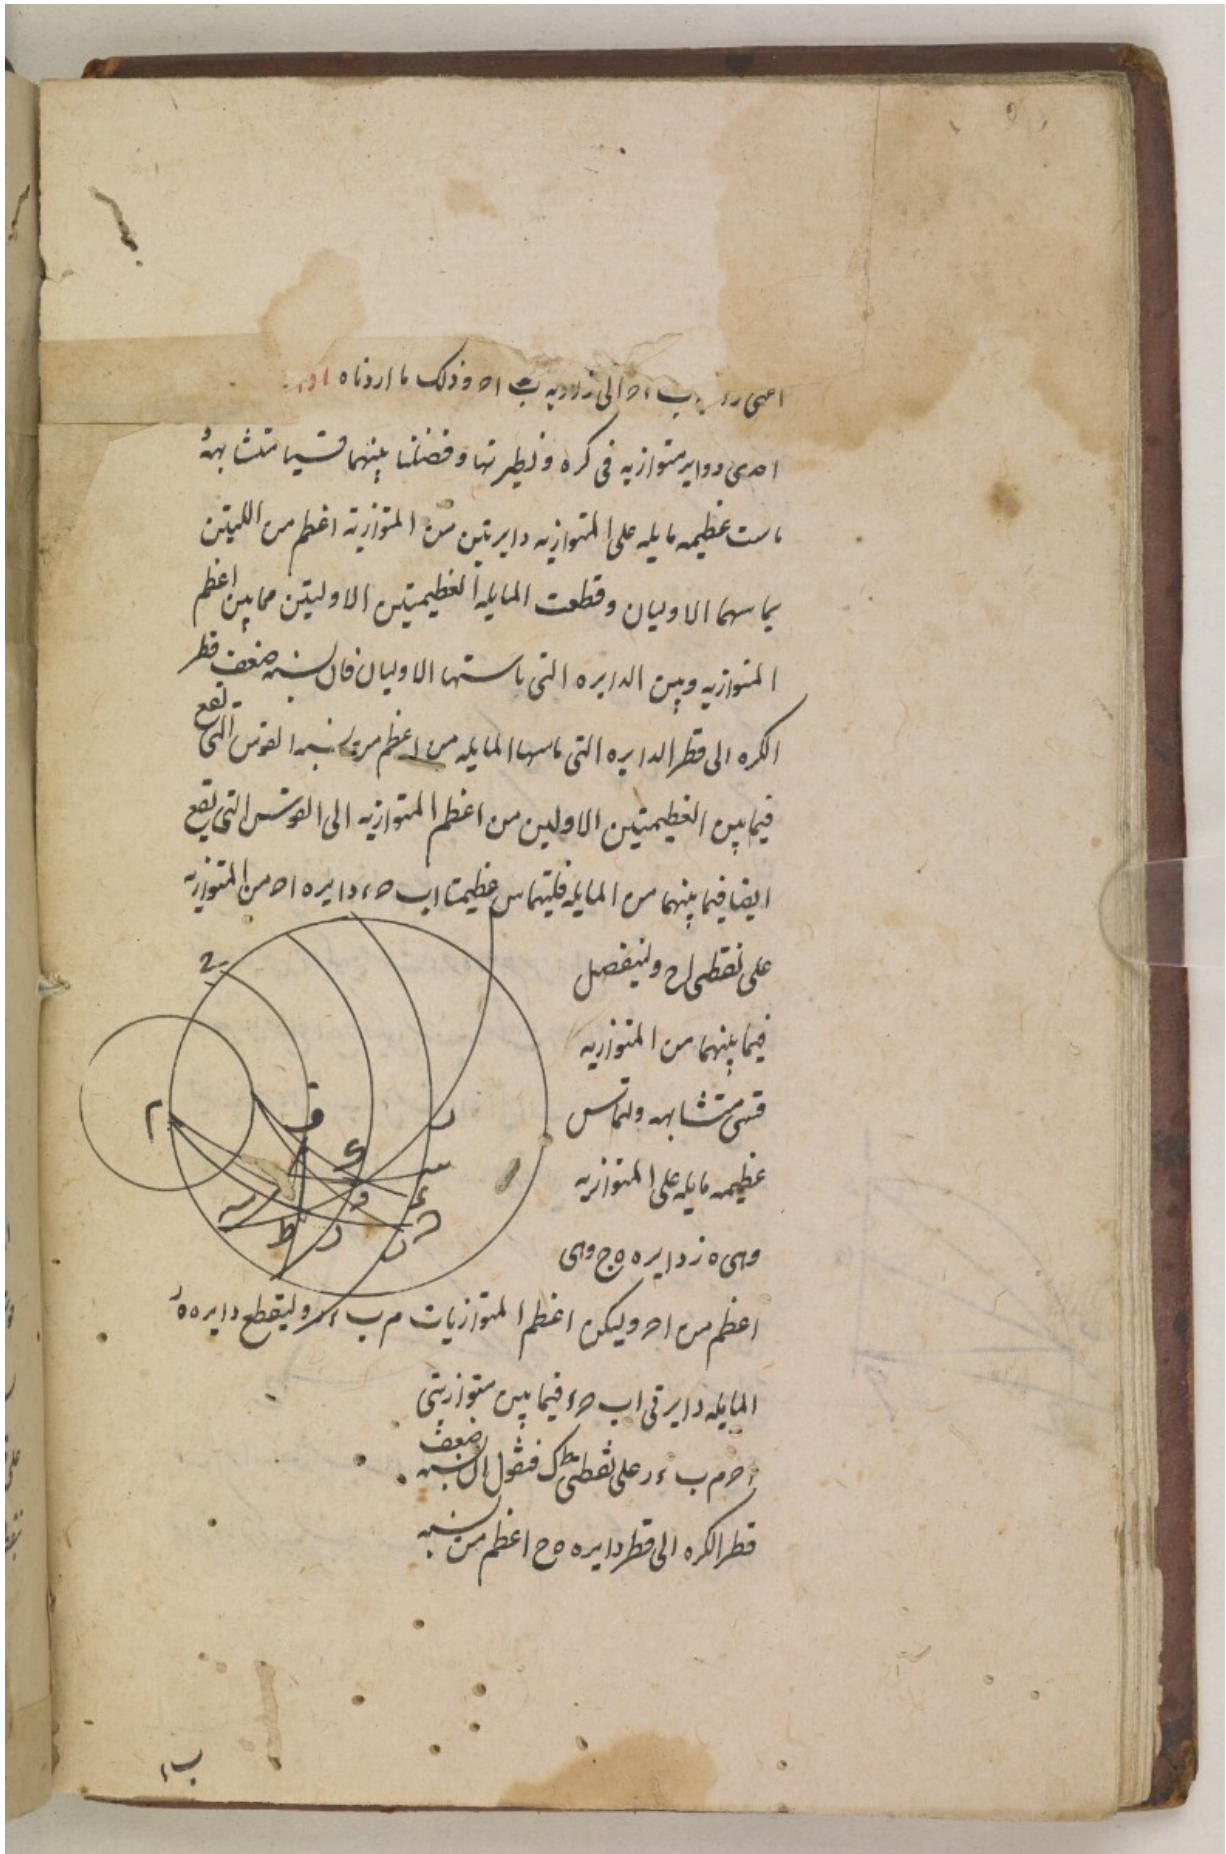 ب ا ح الى زاويه ب ا ح وذلك ما اردناه
احدى دواير متوازيه فى كره ونظيرتها وفصلتا بينهما قسيا متشابهة
ماست عظيمه مايله على المتوازيه دايرتين من المتوازية اعظم من اللتين
يماسهما الاوليان وقطعت المايله العظيمتين الاوليتين مما بين اعظم
المتوازيه وبين الدايره التى ماستها الاوليان فان نسبه ضعف قطر
الكره الى قطر الدايره التى ماسها المايله اعظم من نسبه القوس التى تقع
فيما بين العظيمتين الاولين من اعظم المتوازيه الى القوس التى يقع
ايضا فيما بينهما من المايله فليتماس عظيمتا اب ح ء دايره ا ح من المتوازيه
على نقطتى ا ح ولنفصل
فيما بينهما من المتوازيه
قسى متشابهه ولتماس
عظيمه مايله على المتوازيه
وهى ه ز دايره ه ح وهى
اعظم من ا ح وليكن اعظم المتوازيات م ب ء ر وليقطع دايره ه ز
المايله دايرتى اب ح ء فيما بين متوازيتى
ا ح م ب ء ر على نقطتى ط ك فنقول ان نسبه ضعف
قطر الكره الى قطر دايره ه ح اعظم من نسبه